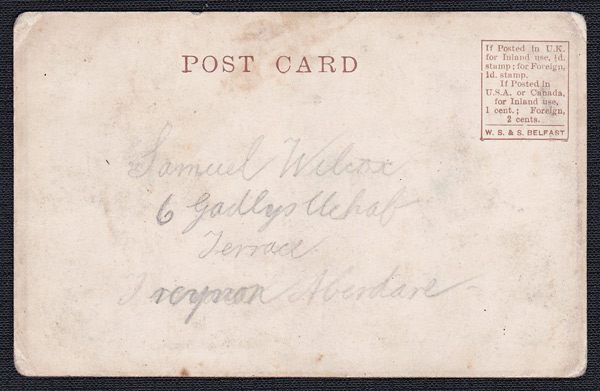 POST CARD
If Posted in U.K.
for Inland use, ½d.
stamp; for Foreign,
1d. stamp.
If Posted in
U.S.A. or Canada,
for Inland use,
1 cent.; Foreign,
2 cents.
W. S. & S. BELFAST
Samuel Wilcox
6 Gadlys Uchaf
Terrace
Aberdare